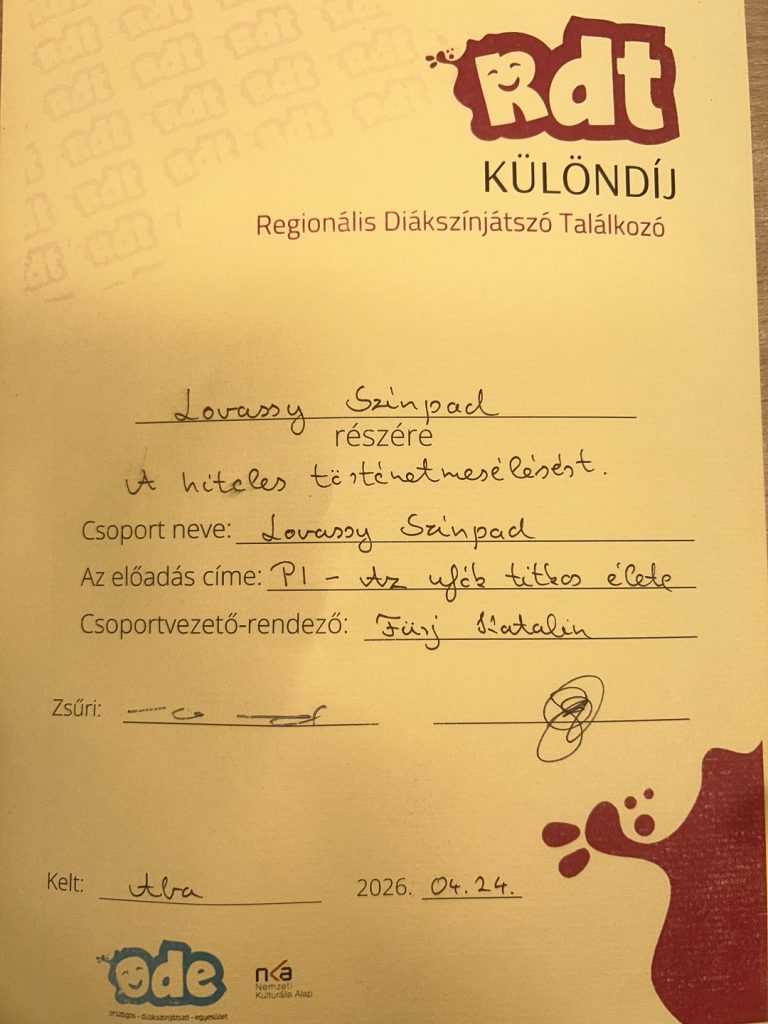 Rdt
KÜLÖNDÍJ
Regionális Diákszínjátszó Találkozó
Lovassy Színpad
részére
A hiteles történetmesélésért.
Csoport neve: Lovassy Színpad
Az előadás címe: PI - Az ufók titkos élete
Csoportvezető-rendező: Fürj Katalin
Zsűri:
Kelt: Aba 2026. 04.24.
ode
országos • diákszínjátszó • egyesület
nka
Nemzeti
Kulturális Alap